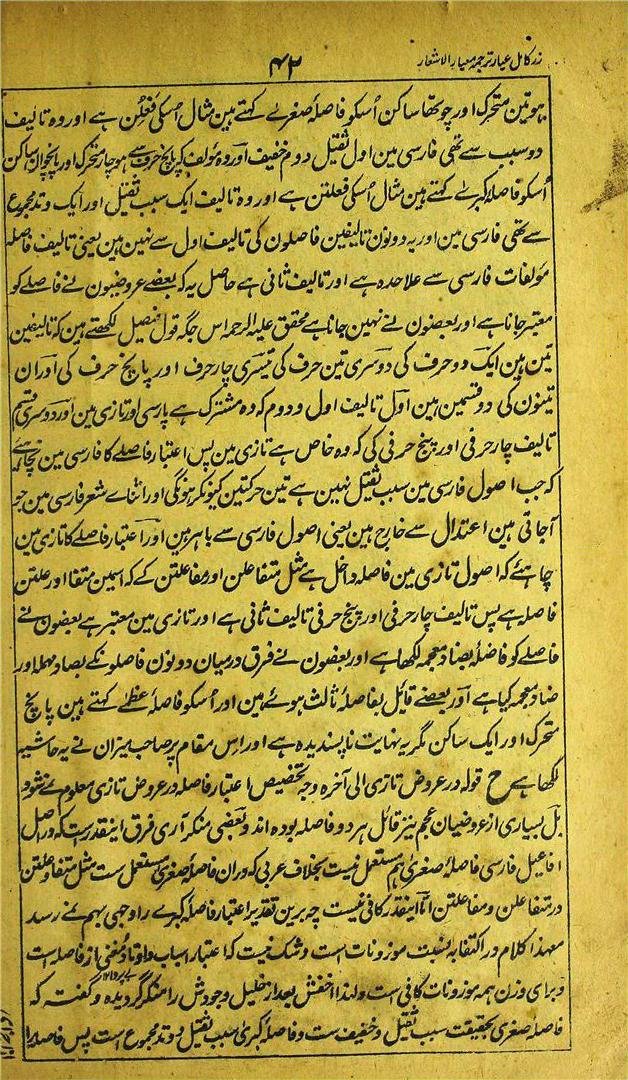 زر کامل عیار ترجمہ معیار الاشعار
۴۲
ہو تین متحرک اور چوتھا ساکن اُسکو فاصلۂ صغرے کہتے ہین مثال اُسکی فَعِلُن ہے اور وہ تالیف
دو سبب سے تھی فارسی مین اول ثقیل دوم خفیف اور وہ مؤلف کہ پانچ حرف سے ہو چار متحرک اور پانچوان ساکن
اُسکو فاصلۂ کبرے کہتے ہین مثال اُسکی فعلتن ہے اور وہ تالیف ایک سبب ثقیل اور ایک وتد مجموع
سے تھی فارسی مین اور یہ دونون تالیفین فاصلون کی تالیف اول سے نہین ہین یعنی تالیف فاصلہ
مؤلفات فارسی سے علاحدہ ہے اور تالیف ثانی ہے حاصل یہ کہ بعضے عروضیون نے فاصلے کو
معتبر جانا ہے اور بعضون نے نہین جانا ہے محقق علیہ الرحمہ اس جگہ قول فیصل لکھتے ہین کہ تالیفین
تین ہین ایک دو حرف کی دوسری تین حرف کی تیسری چار حرف اور پانچ حرف کی اور ان
تینون کی دو قسمین ہین اول تالیف اول و دوم کہ وہ مشترک ہے پارسی اور تازی مین اور دوسری قسم
تالیف چار حرفی اور پنج حرفی کی کہ وہ خاص ہے تازی مین پس اعتبار فاصلے کا فارسی مین نچاہئے
کہ جب اصول فارسی مین سبب ثقیل نہین ہے تین حرکتین کیونکر ہونگی اور اثناے شعر فارسی مین جو
آجاتی ہین اعتدال سے خارج ہین یعنی اصول فارسی سے باہر ہین اور اعتبار فاصلے کا تازی مین
چاہئے کہ اصول تازی مین فاصلہ داخل ہے مثل متفاعلن اور مفاعلتن کے کہ اسمین متفا اور علتن
فاصلہ ہے پس تالیف چار حرفی اور پنج حرفی تالیف ثانی ہے اور تازی مین معتبر ہے بعضون نے
فاصلے کو فاضلہ بضاد معجمہ لکھا ہے اور بعضون نے فرق درمیان دونون فاصلونکے بصاد مہملہ اور
ضاد معجمہ کیا ہے اور بعضے قائل بفاصلۂ ثالث ہوئے ہین اور اُسکو فاصلۂ عظمے کہتے ہین پانچ
متحرک اور ایک ساکن مگر یہ نہایت ناپسندیدہ ہے اور اس مقام پر صاحب میزان نے یہ حاشیہ
لکھا ہے ح قولہ در عروض تازی الی آخرہ وجہ تخصیص اعتبار فاصلہ در عروض تازی معلوم نمے شود
بل بسیاری از عروضیان عجم نیز قائل ہر دو فاصلہ بودہ اند و بعضی منکر آری فرق اینقدرست کہ در اصل
افاعیل فارسی فاصلۂ صغری ہم مستعمل نیست بخلاف عربی کہ دران فاصلۂ صغری مستعمل ست مثل متفا و علتن
در متفاعلن و مفاعلتن اما اینقدر کافی نیست چہ برین تقدیر اعتبار فاصلۂ کبرے را وجہی بہم نمے رسد
معہذا کلام در اکتفا بہ نسبت موزونات است و شک نیست کہ اعتبار اسباب و اوتاد مغنی از فاصلہ است
و برای وزن ہمہ موزونات کافی است و لہذا اخفش بعد از خلیل وجودش را منکر گردیدہ و گفتہ کہ
فاصلۂ صغری بحقیقت سبب ثقیل و خفیف ست و فاصلۂ کبری سبب ثقیل و وتد مجموع است پس فاصلہ را